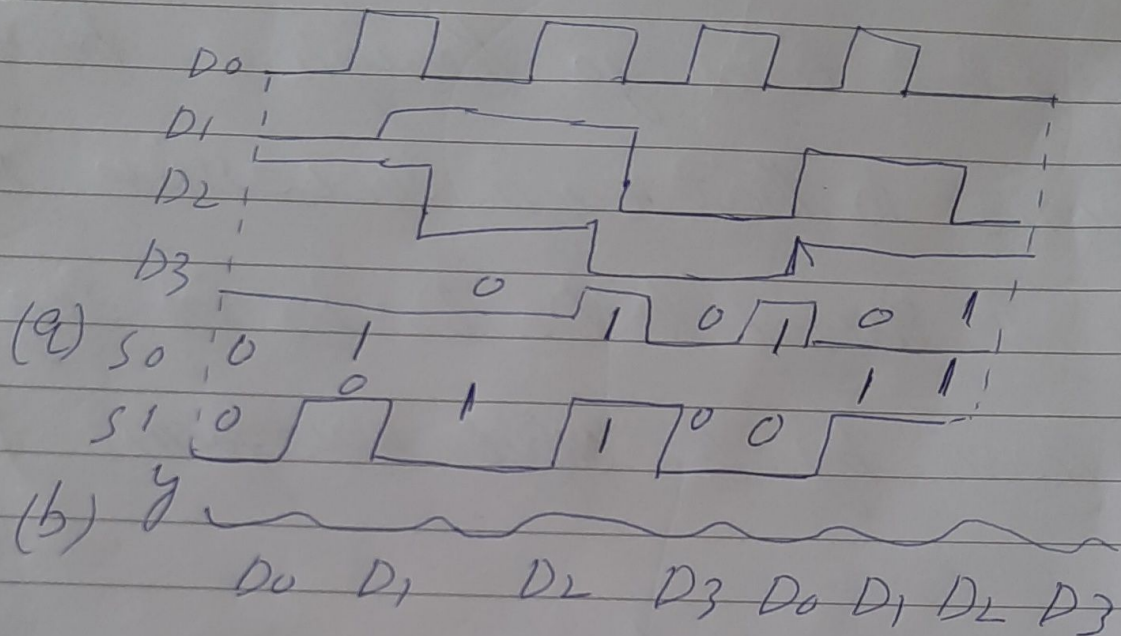 D0
D1
D2
D3
0
(a) S0 0 1 1 0 1 0 1
0 1 1
S1 0 1 1 0 0
(b) y
D0 D1 D2 D3 D0 D1 D2 D3